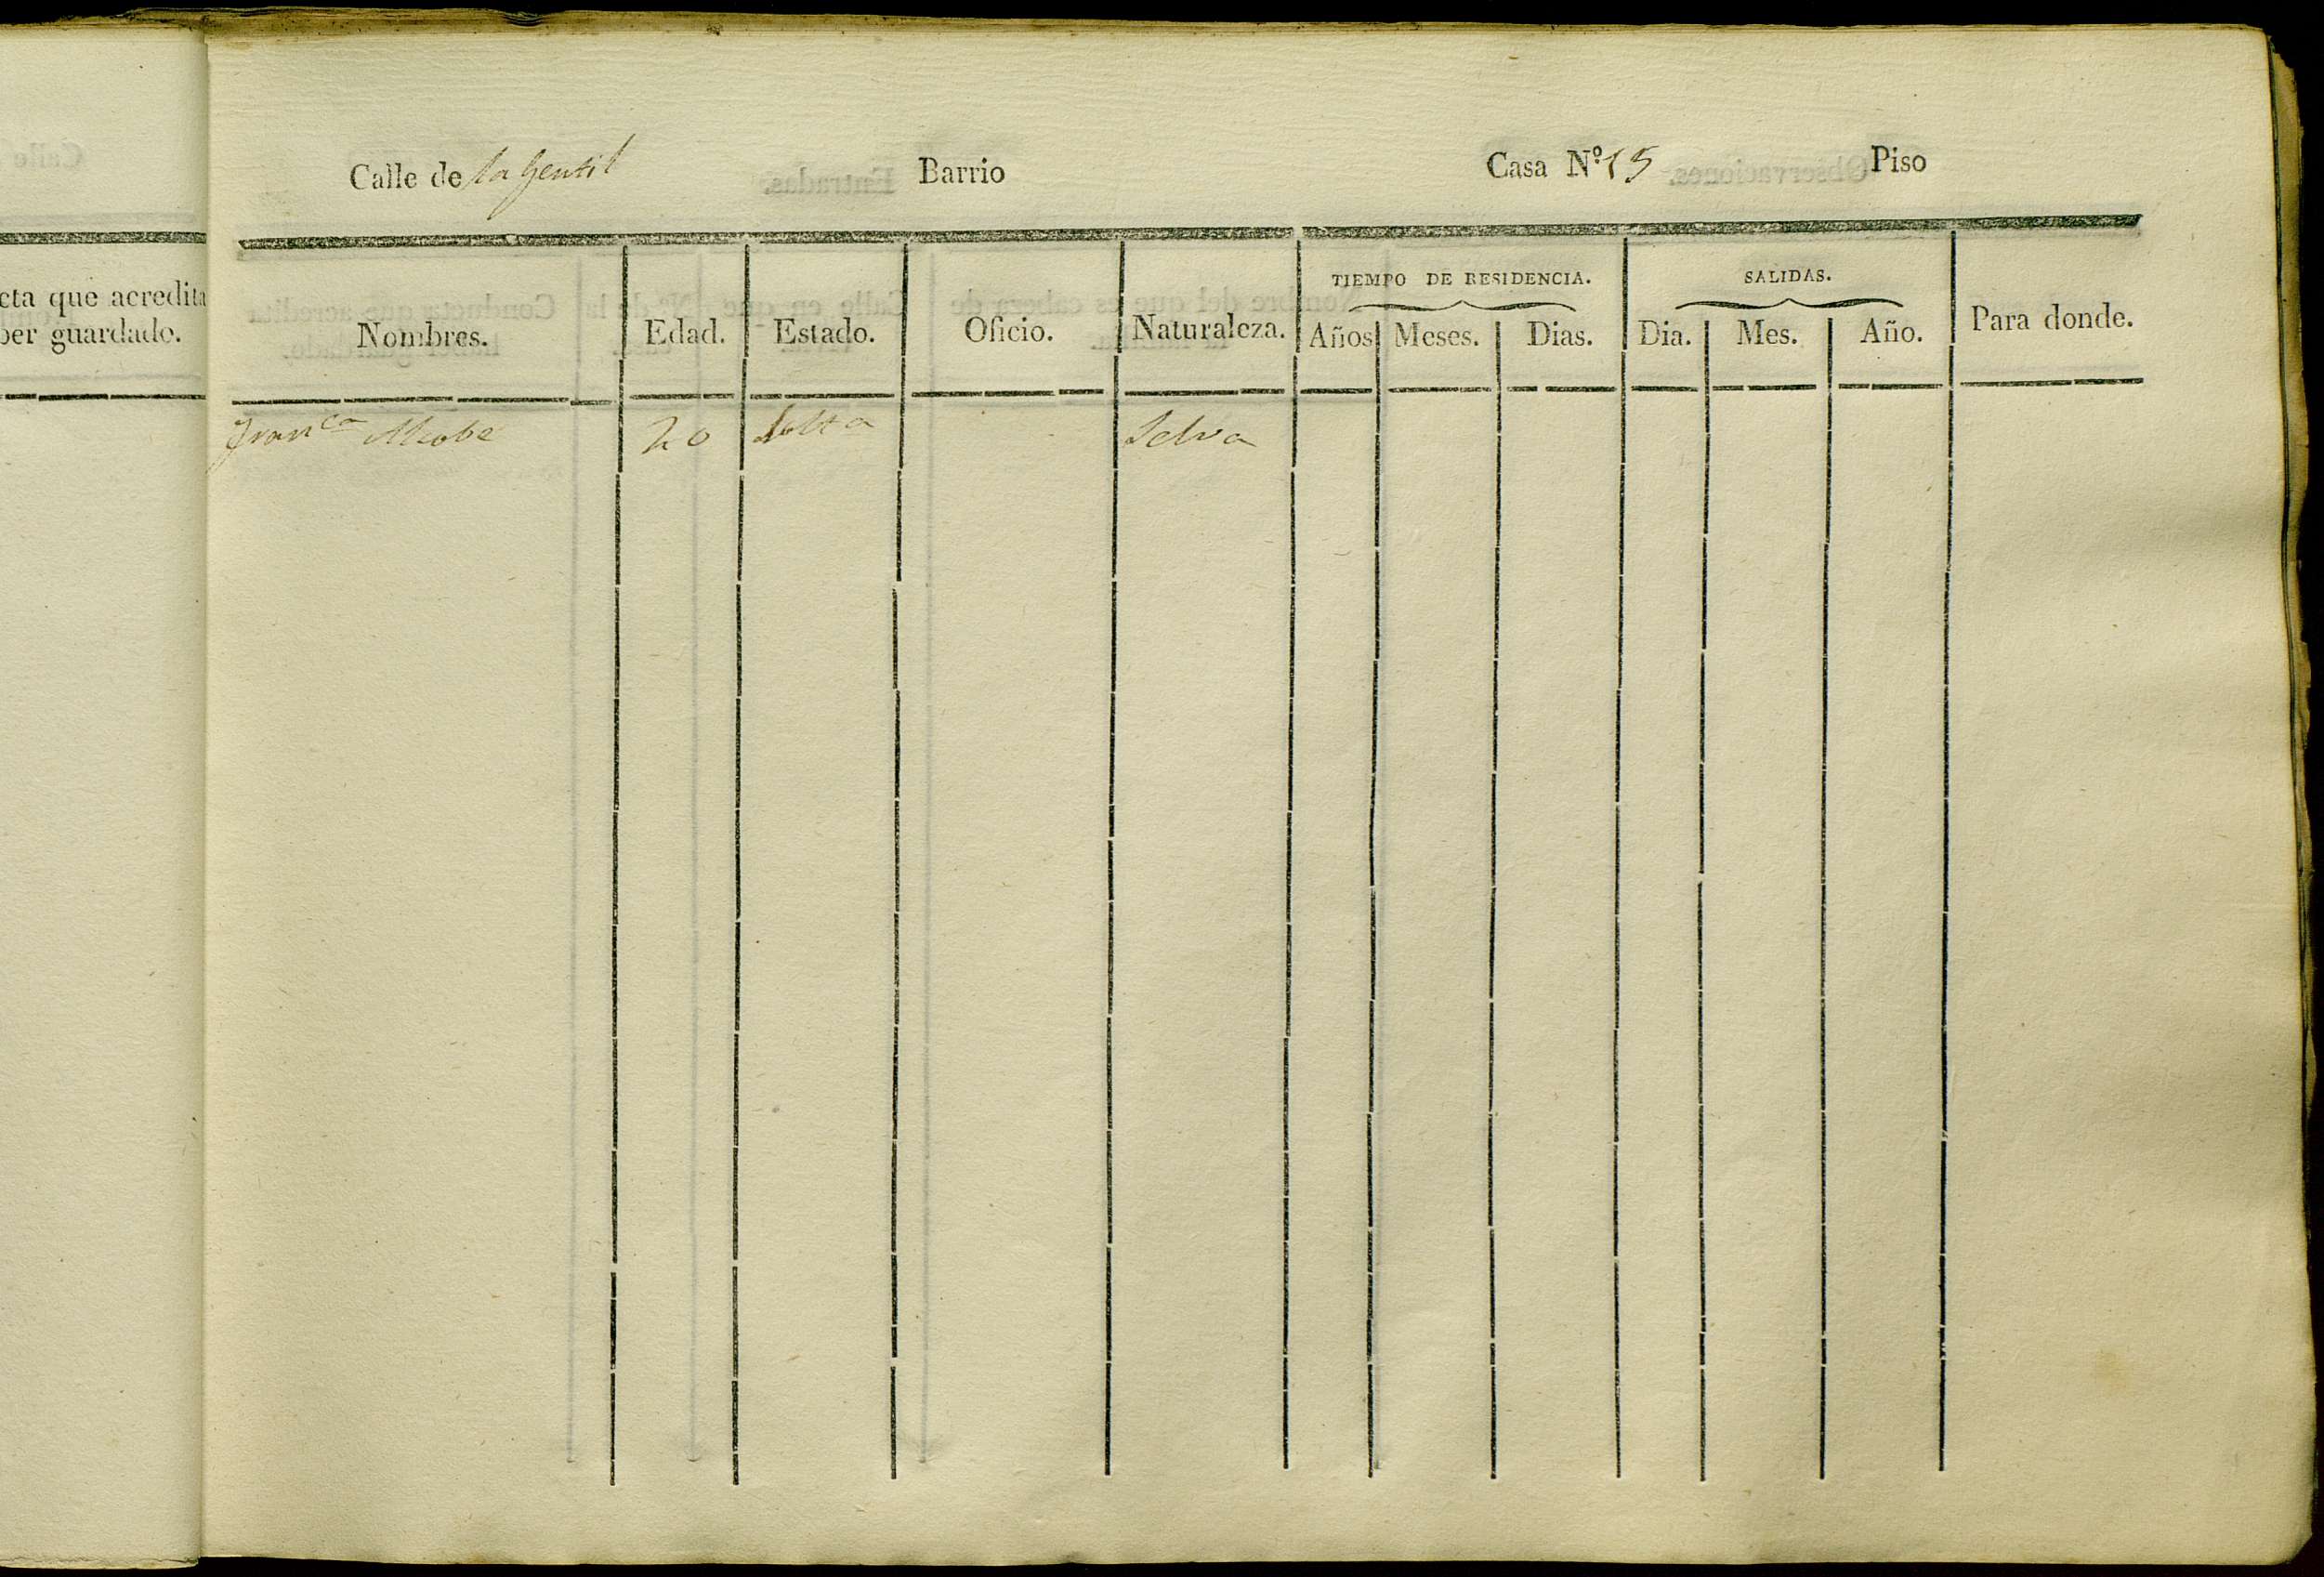 Calle de la Gentil Barrio Casa N.º 15 Piso
cta que acredita
ber guardado.
TIEMPO DE RESIDENCIA. SALIDAS.
Nombres. Edad. Estado. Oficio. Naturaleza. Años Meses. Dias. Dia. Mes. Año. Para donde.
Fran.ca 20 Solta Selva